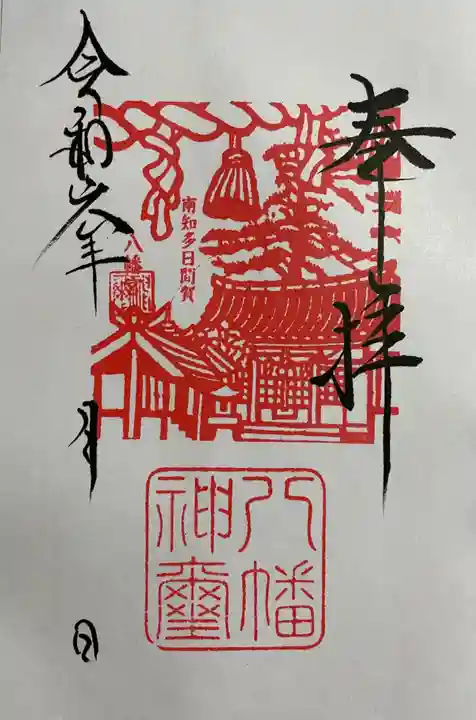 奉拝
南知多日間賀
八幡宮
八幡
神璽
令和六年
月
日